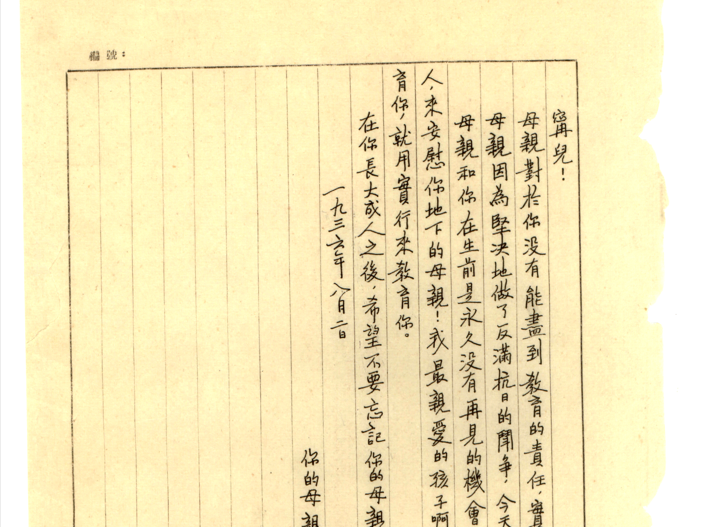 編號：
甯兒！
母親對於你没有能盡到教育的責任，實
母親因為堅决地做了反滿抗日的鬪争，今天
母親和你在生前是永久没有再見的機會
人，來安慰你地下的母親！我最親愛的孩子啊
育你，就用實行來教育你。
在你長大成人之後，希望不要忘記你的母親
一九三六年八月二日
你的母親